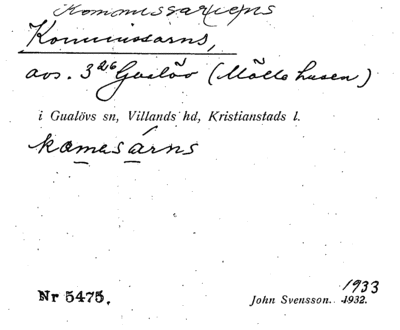 Kommissariens
Kommissarns,
avs. 3²⁶ Gualöv (Möllehusen)
i Gualövs sn, Villands hd, Kristianstads l.
komesárns
1933
Nr 5475. John Svensson. 1932.